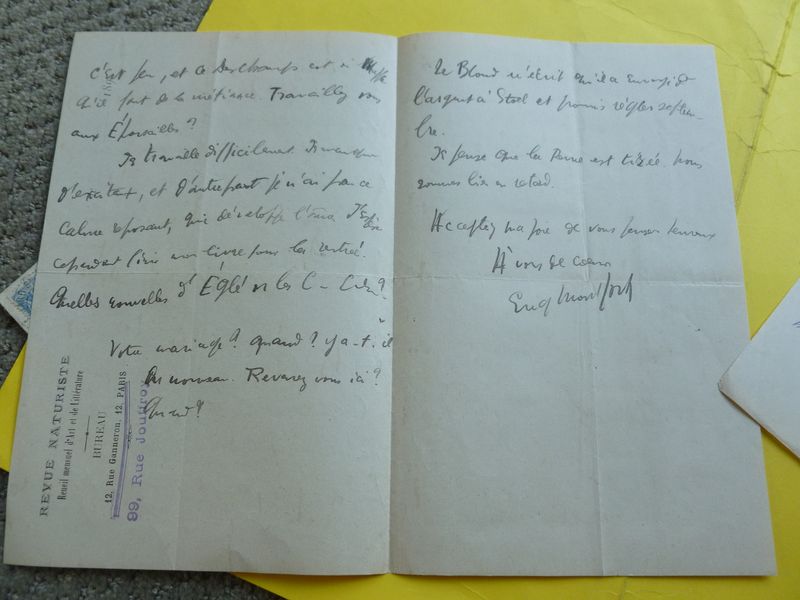 c'est peu, et ce Deschamps est si
qu'il faut de la méfiance. Travaillez vous
aux Épousailles?
Je travaille difficilement. Je manque
d'excitant, et d'autre part je n'ai pas ce
calme reposant, qui développe l'âme. J'espère
cependant finir mon livre pour la rentrée.
Quelles nouvelles d'Églé ou les C
Votre mariage? Quand? Y a-t-il
du nouveau. Revenez vous ici?
Quand?
REVUE NATURISTE
Recueil mensuel d'Art et de Littérature
BUREAU
12, Rue Ganneron, 12, PARIS
99, Rue Jouffroy
Le Blond m'écrit qu'il a envoyé de
l'argent à Stock et promis régler septem-
bre.
Je pense que la Revue est tirée. Nous
sommes bien en retard.
Acceptez ma joie de vous penser heureux
À vous de coeur
Eug Montfort